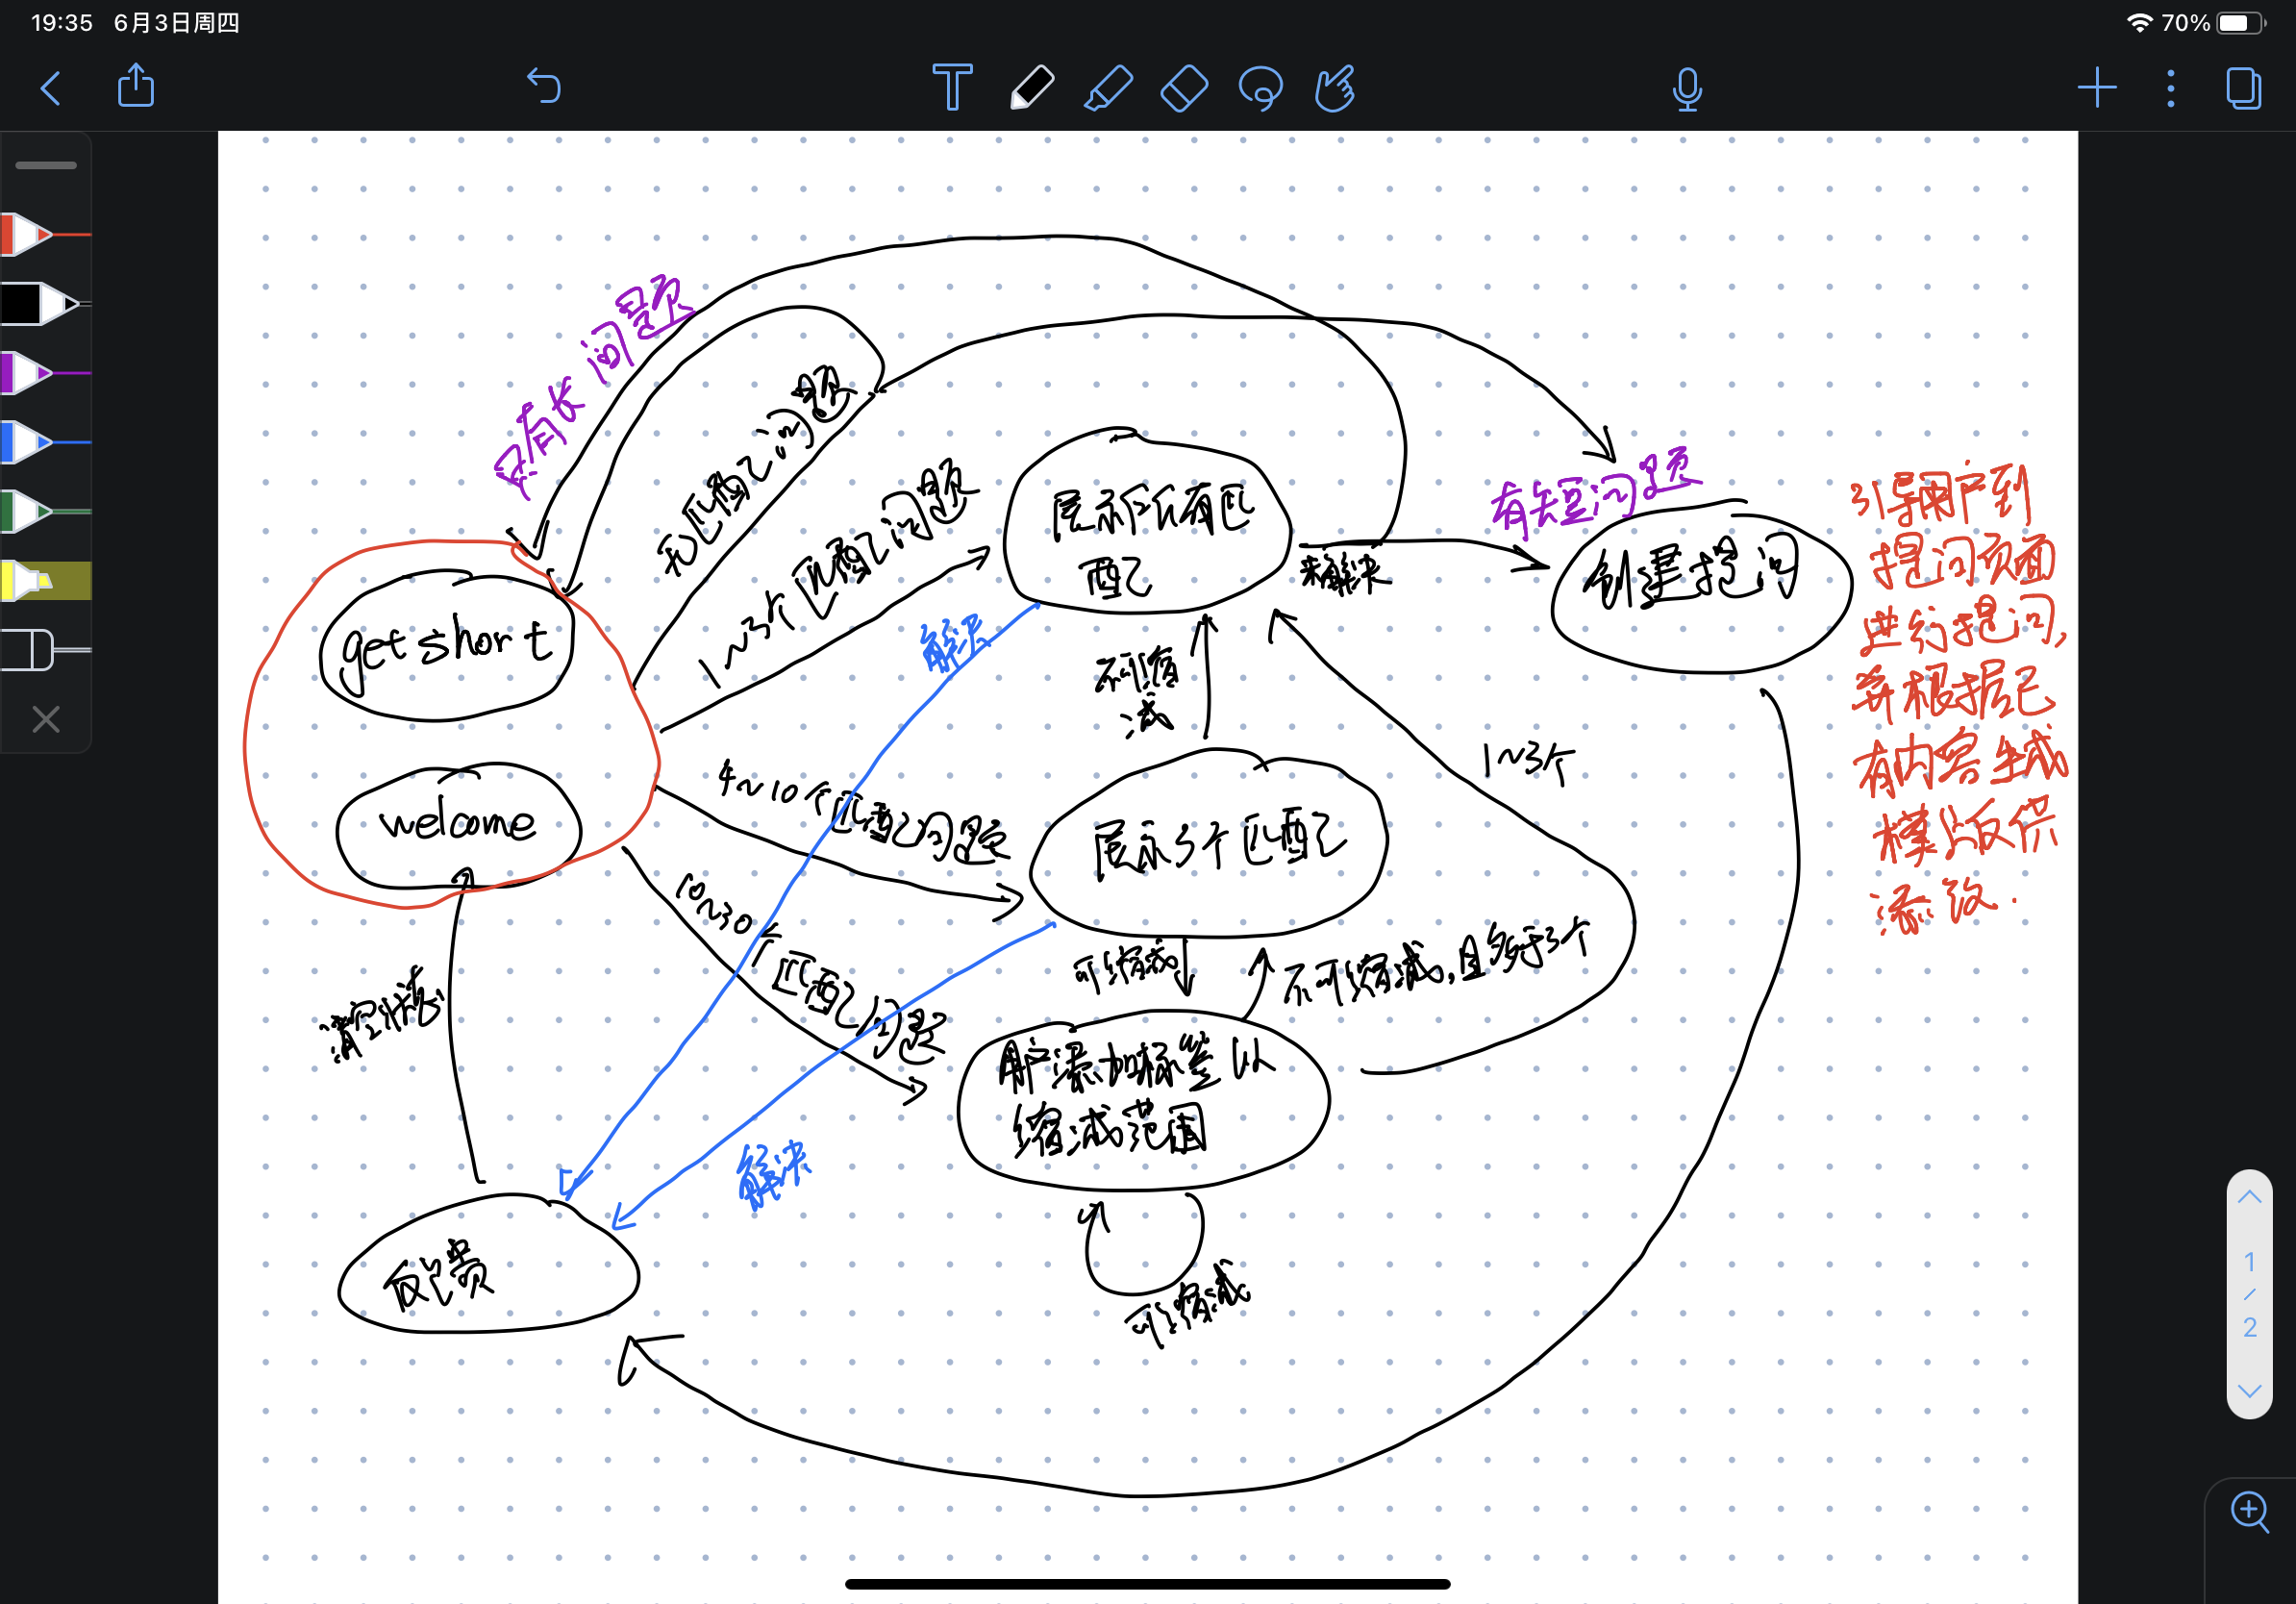 19:35 6月3日周四
70%
没有长问意愿
如匹配问题
1~3个匹配问题
展示所有匹
配
有知道问意愿
创建提问
引导用户到
提问页面
进行提问,
并根据已
有内容生成
模版价
添改.
get short
welome
解决
未解决
不可缩
减
1~3个
4~10个匹配问题
展示3个匹配
10~30个匹配问题
可缩减
不可缩减,且多于3个
用户添加标签以
缩减范围
解决
可缩减
反馈
1
/
2